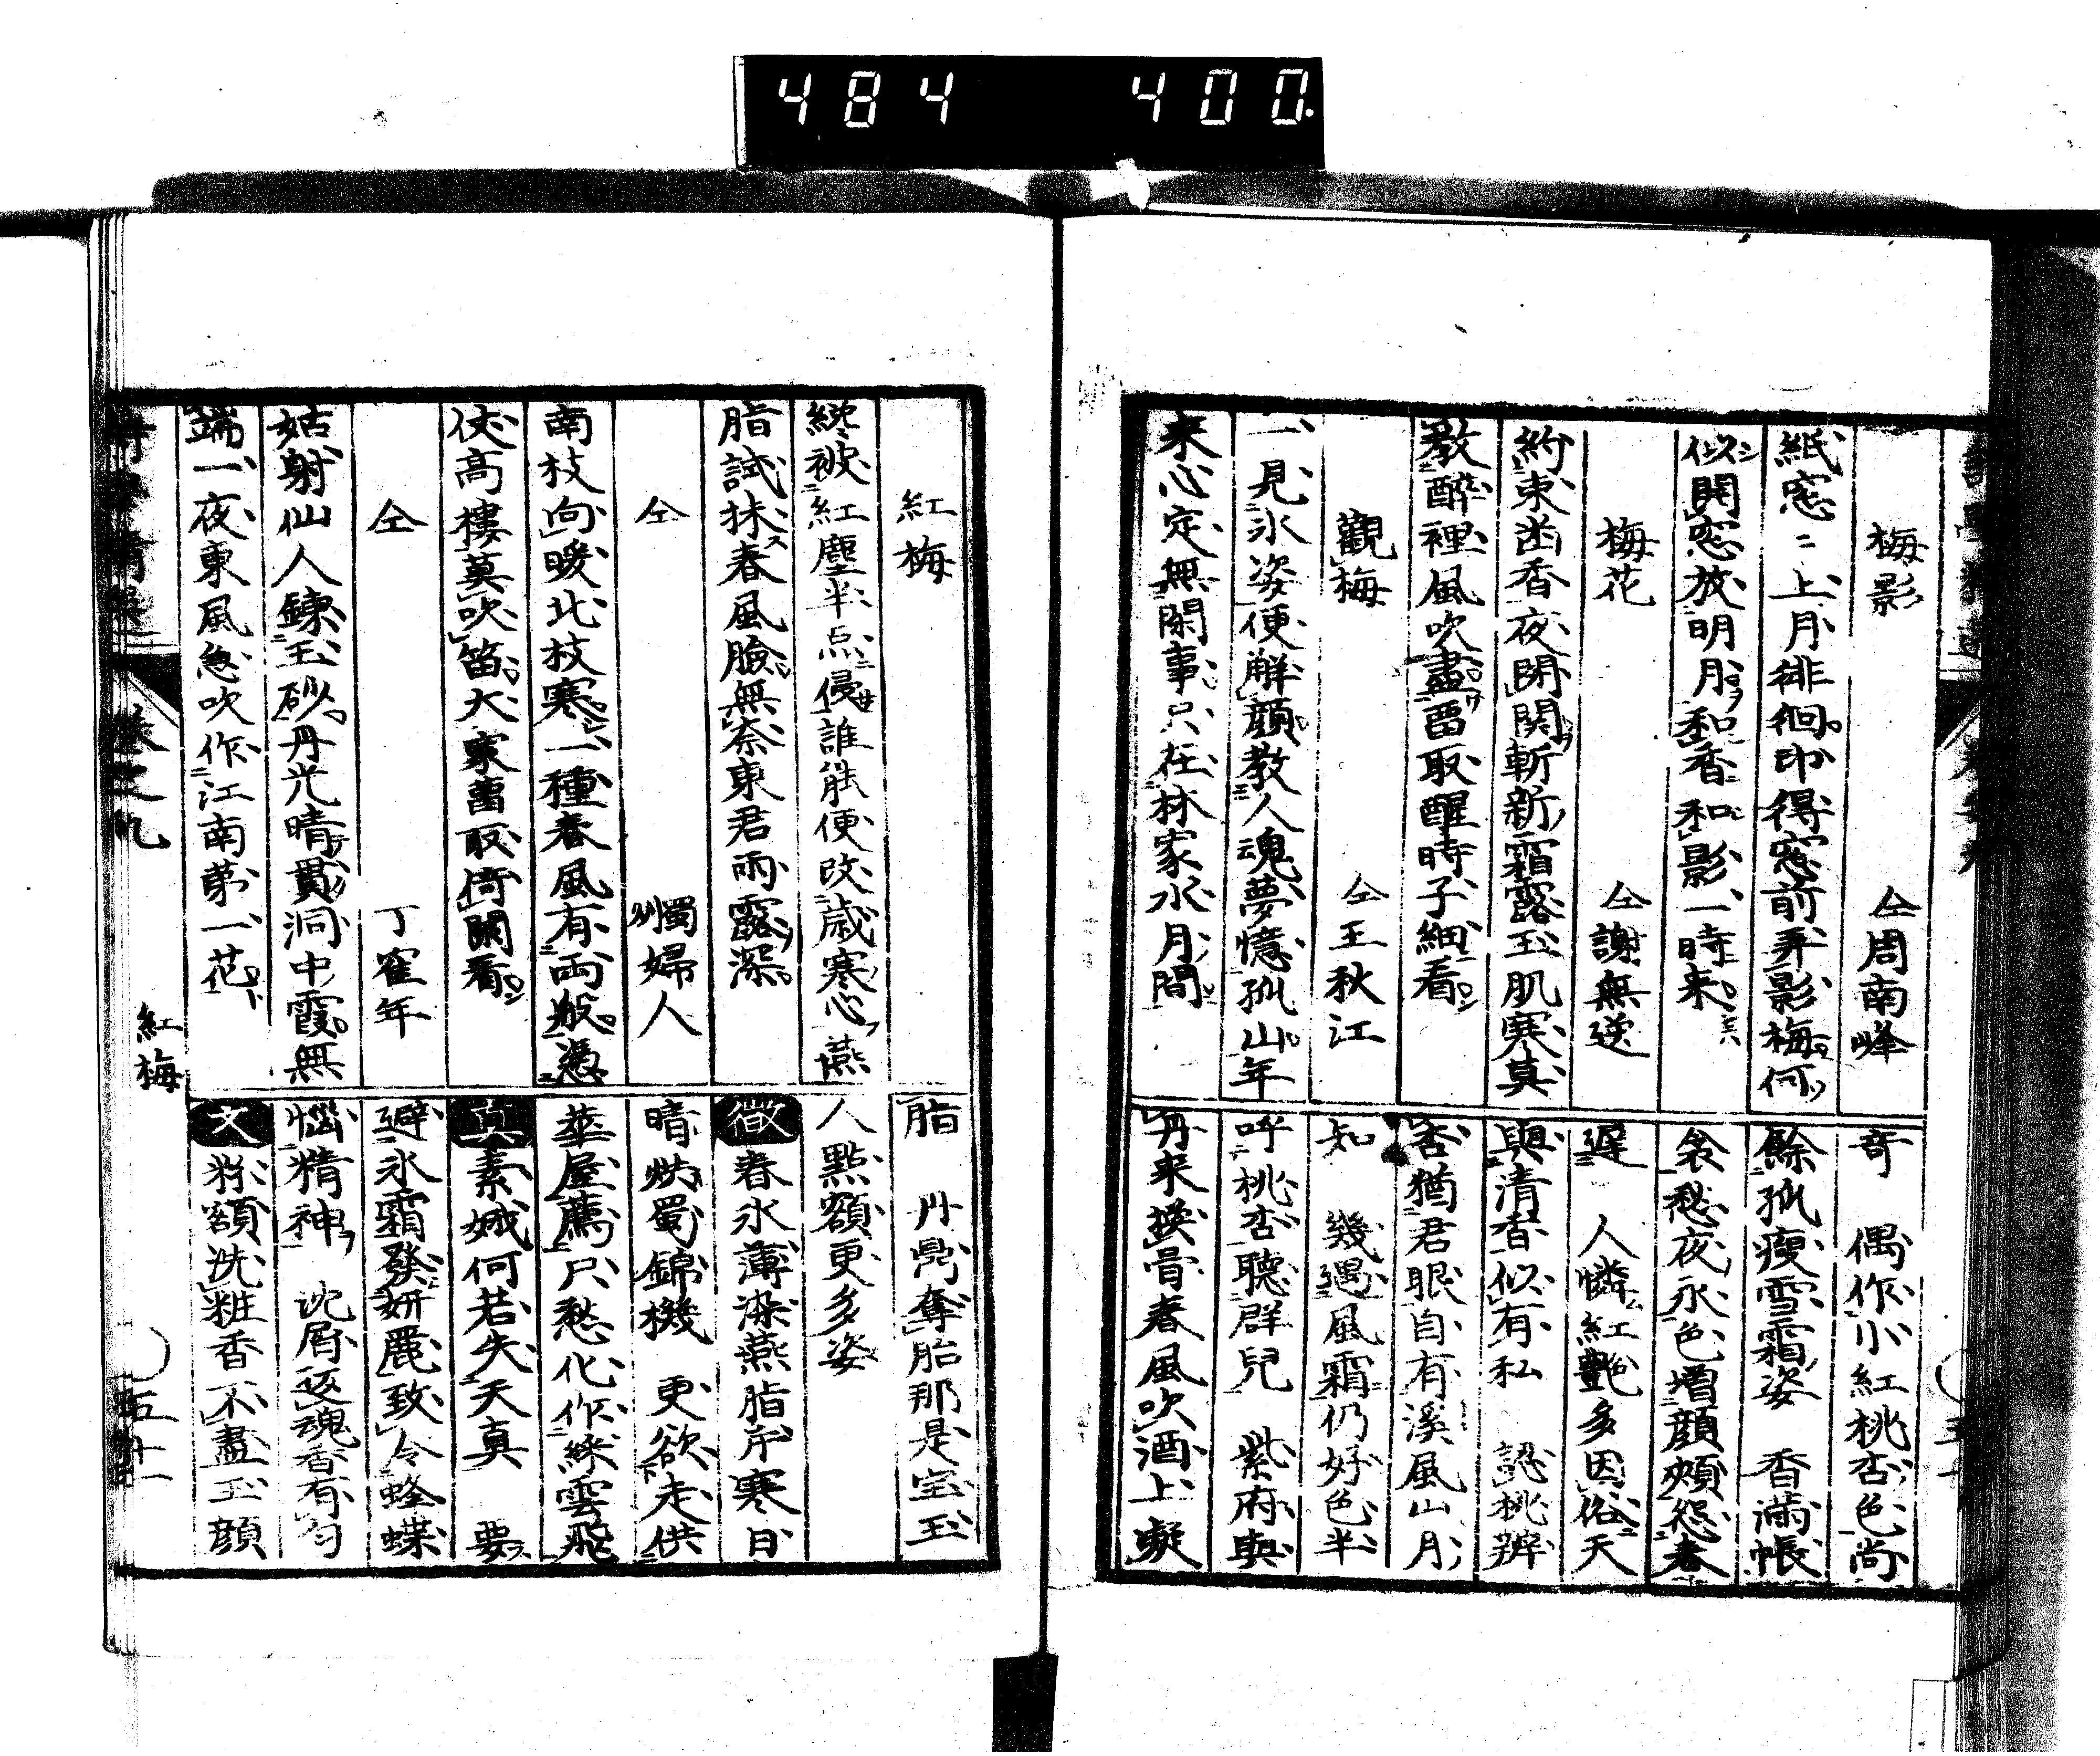 484 400.
梅影 仝周南峰
紙窓〻上月徘徊印得窓前弄影梅何
似開窓放明月和香和影一時来
梅花 仝謝無逆
約束函香夜閉関斬新霜露玉肌寒莫
教酔裡風吹盡畱取醒時子細看
觀梅 仝王秋江
一見氷姿便解顔教人魂夢憶孤山年
来心定無閑事只在林家水月間
奇 偶作小紅桃杏色尚
餘孤瘦雪霜姿 香滿帳
衾愁夜永色增顔頰怨春
遲 人憐紅艷多因俗天
與清香似有私 認桃辨
杏猶君眼自有溪風山月
知 幾遇風霜仍好色半
呼桃杏聽群兒 紫府與
丹来換骨春風吹酒上凝
紅梅
纔被紅塵半点侵誰能便改歳寒心燕
脂試抹春風臉無奈東君雨露深
仝 蜀婦人
南枝向暖北枝寒一種春風有両般憑
仗高樓莫吹笛大家畱取倚闌看
仝 丁崔年
姑射仙人錬玉砂丹光晴貫洞中霞無
端一夜東風急吹作江南第一花
脂 丹鼎奪胎那是宝玉
人點額更多姿
徴 春氷薄染燕脂斥寒日
晴烘蜀錦機 更欲走供
華屋薦只愁化作綵雲飛
真 素娥何若失天真 要
避氷霜發妍麗致令蜂蝶
惱精神 沈屑返魂香有匂
文 粉額洗粧香不盡玉顔
紅梅
五十一